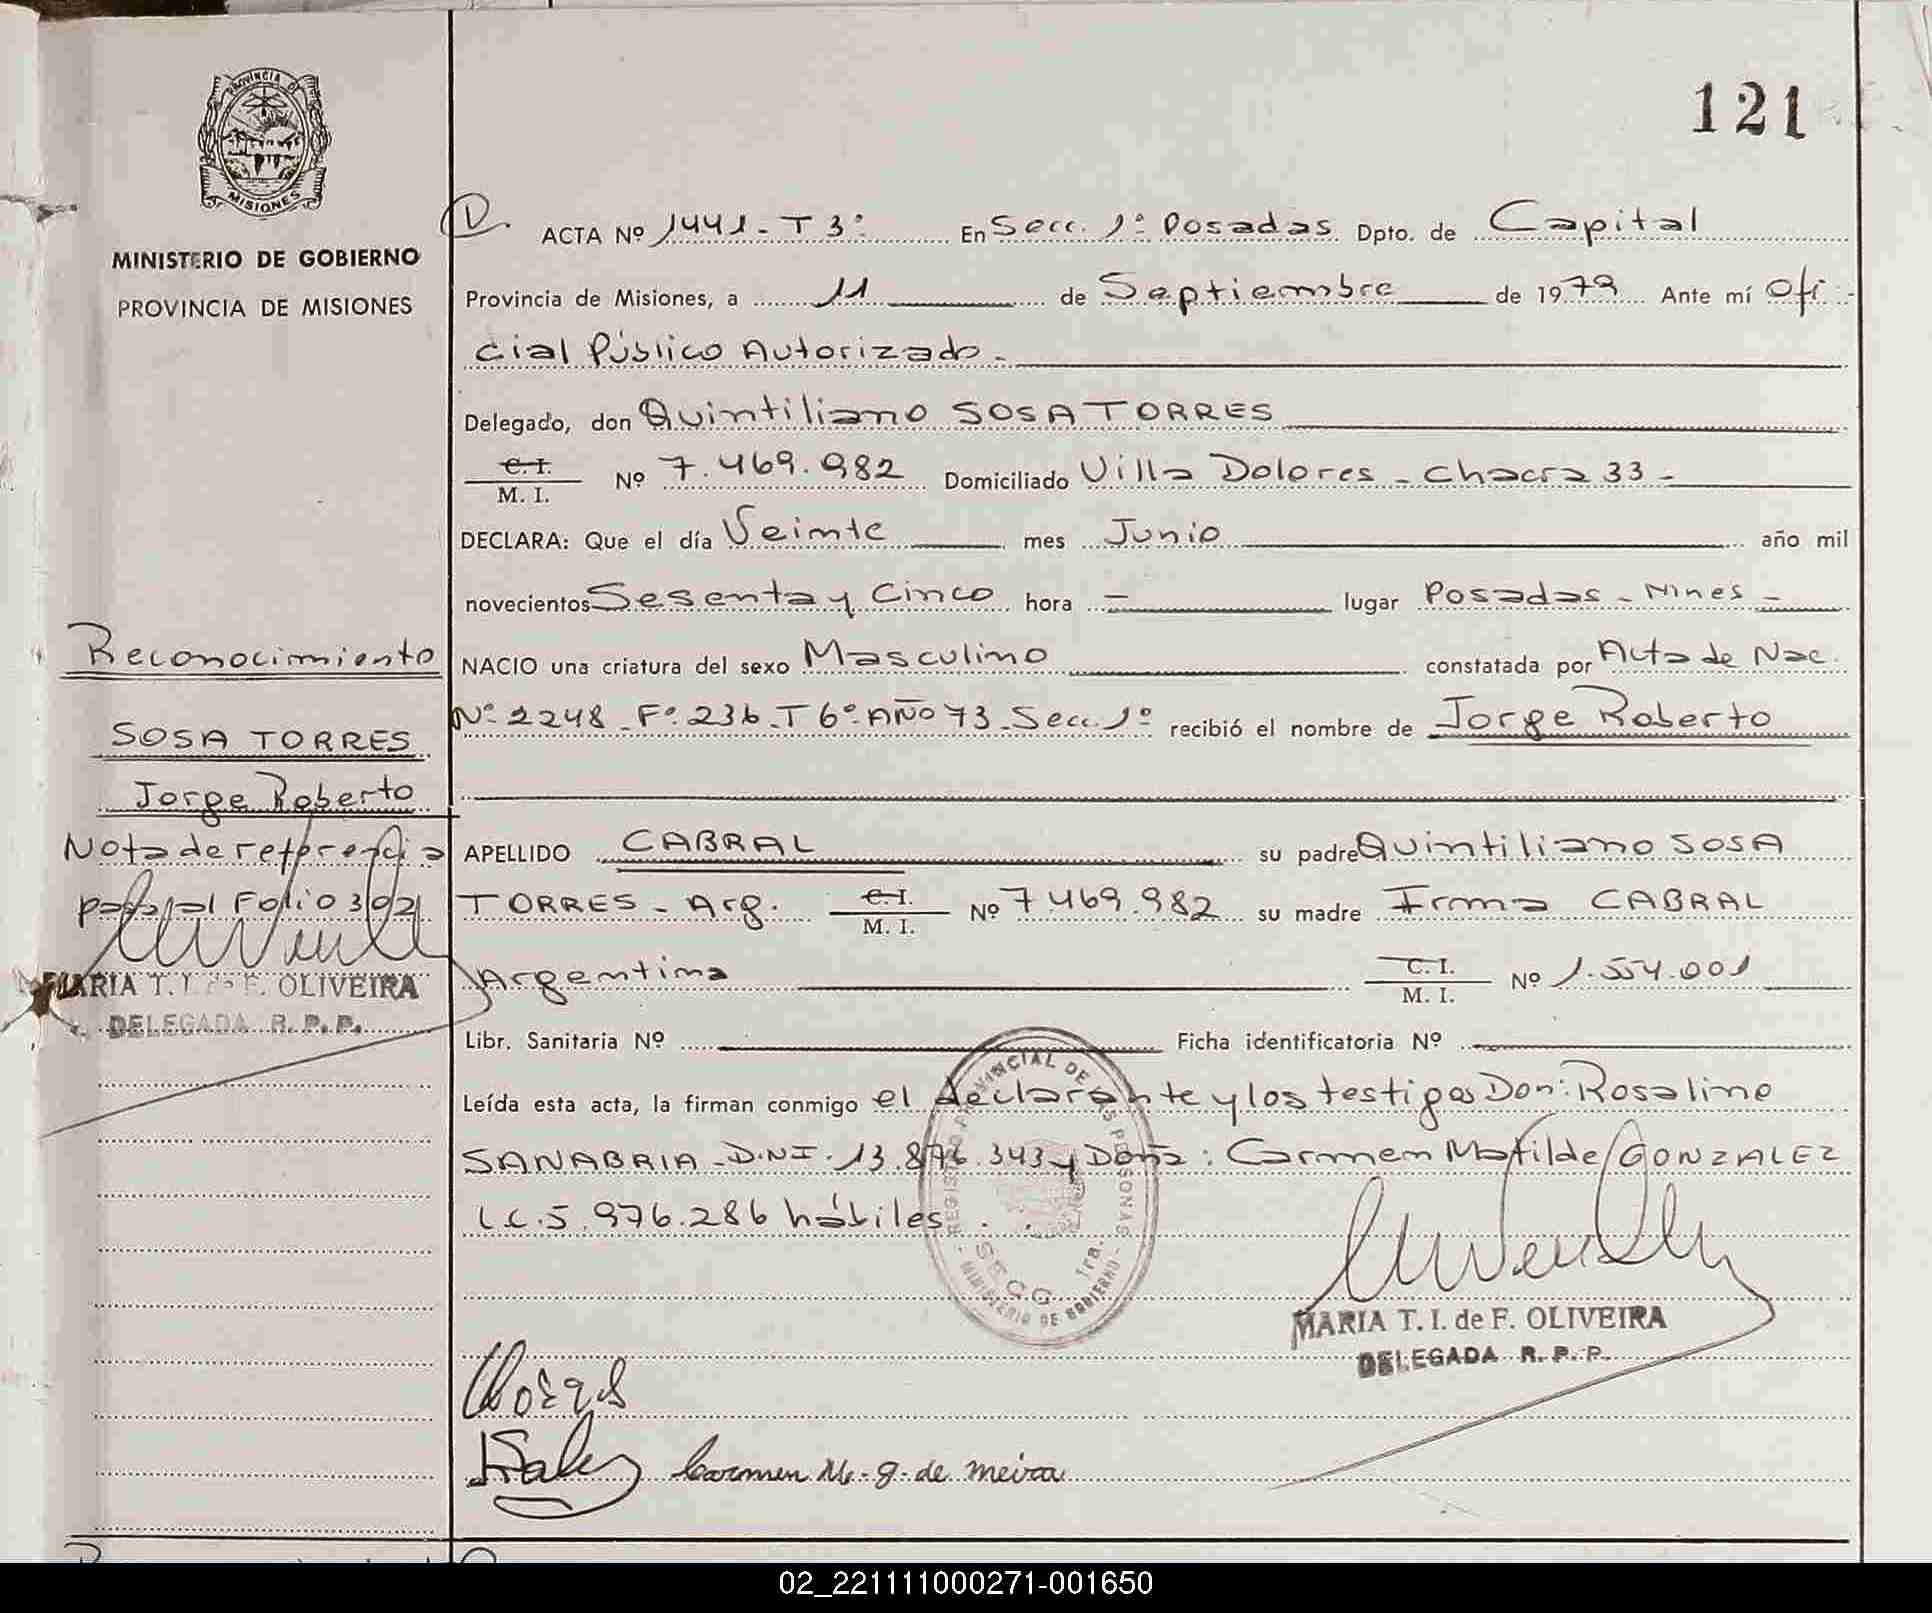 121
PROVINCIA DE
MISIONES
MINISTERIO DE GOBIERNO
PROVINCIA DE MISIONES
Reconocimiento
SOSA TORRES
Jorge Roberto
Nota de referencia
pasa al Folio 302
MARIA T. I. de F. OLIVEIRA
DELEGADA R. P. P.
ACTA Nº 1441 - T 3º En Secc. 1º Posadas Dpto. de Capital
Provincia de Misiones, a 11 de Septiembre de 1979 Ante mí Ofi
cial Público Autorizado -
Delegado, don Quintiliano SOSA TORRES
C. I. M. I. Nº 7.469.982 Domiciliado Villa Dolores - Chacra 33 -
DECLARA: Que el día Veinte mes Junio año mil
novecientos Sesenta y Cinco hora - lugar Posadas - Mnes -
NACIO una criatura del sexo Masculino constatada por Acta de Nac.
Nº 2248 - Fº 236 - T 6º - AÑO 73 - Secc. 1º recibió el nombre de Jorge Roberto
APELLIDO CABRAL su padre Quintiliano SOSA
TORRES - Arg. C. I. M. I. Nº 7.469.982 su madre Irma CABRAL
Argentina C. I. M. I. Nº 1.554.001
Libr. Sanitaria Nº Ficha identificatoria Nº
Leída esta acta, la firman conmigo el declarante y los testigos Don: Rosalino
SANABRIA - D.N.I. 13.876.343 y Doña: Carmen Matilde GONZALEZ
L.C. 5.976.286 hábiles
REGISTRO PROVINCIAL DE LAS PERSONAS
SECC. 1ra.
MINISTERIO DE GOBIERNO
MARIA T. I. de F. OLIVEIRA
DELEGADA R. P. P.
Carmen M. G. de Meira
02_221111000271-001650